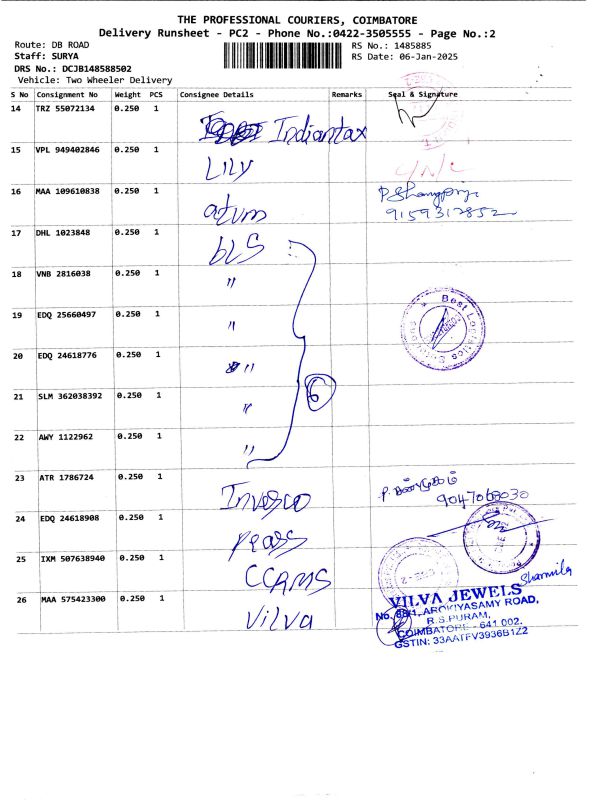 THE PROFESSIONAL COURIERS, COIMBATORE
Delivery Runsheet - PC2 - Phone No.:0422-3505555 - Page No.:2
Route: DB ROAD RS No.: 1485885
Staff: SURYA RS Date: 06-Jan-2025
DRS No.: DCJB148588502
Vehicle: Two Wheeler Delivery
S No Consignment No Weight PCS Consignee Details Remarks Seal & Signature
14 TRZ 55072134 0.250 1 Indiantax
15 VPL 949402846 0.250 1 Lily
16 MAA 109610838 0.250 1 atum
9159312852
17 DHL 1023848 0.250 1 bLS
18 VNB 2816038 0.250 1 "
19 EDQ 25660497 0.250 1 " Best Logistics Solutions
20 EDQ 24618776 0.250 1 "
21 SLM 362038392 0.250 1 " 6
22 AWY 1122962 0.250 1 "
23 ATR 1786724 0.250 1 Invesco
9047068030
24 EDQ 24618908 0.250 1 Pears
25 IXM 507638940 0.250 1 CCAMS Sharmila
26 MAA 575423300 0.250 1 Vilva
VILVA JEWELS
No. 88/1, AROKIYASAMY ROAD,
R.S.PURAM,
COIMBATORE - 641 002.
GSTIN: 33AATFV3936B1Z2